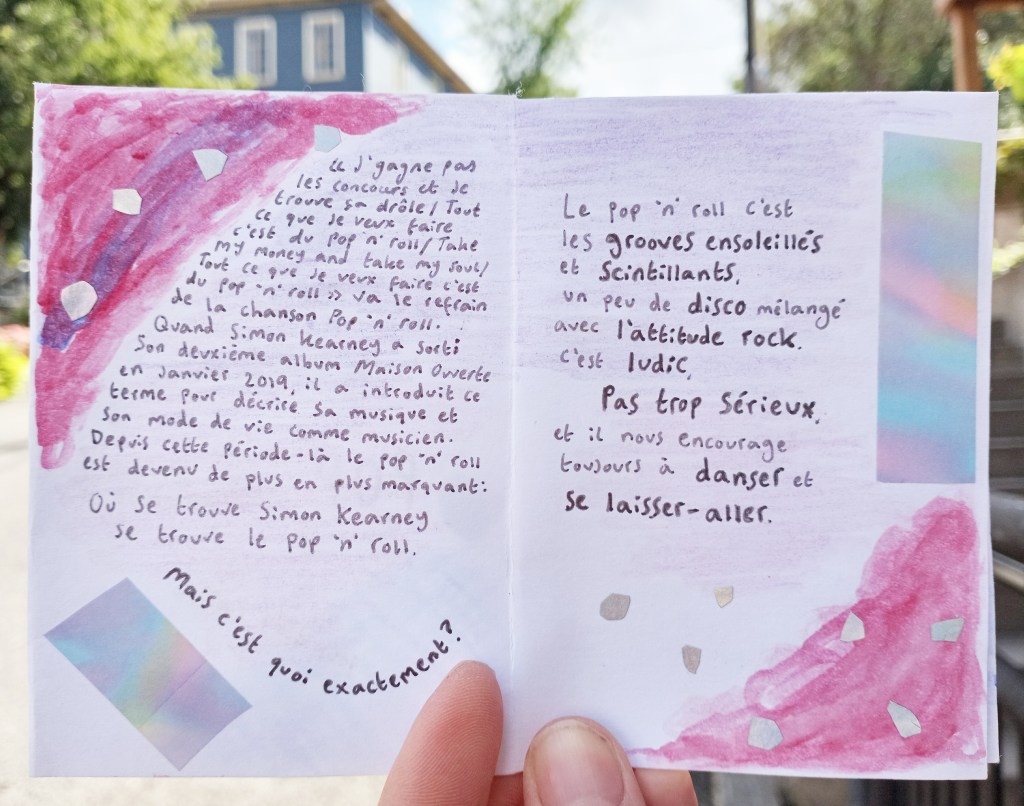 « J'gagne pas
les concours et je
trouve sa drôle / Tout
ce que je veux faire
c'est du pop 'n' roll / Take
my money and take my soul /
Tout ce que je veux faire c'est
du pop 'n' roll » va le refrain
de la chanson Pop 'n' roll.
Quand Simon Kearney a sorti
Son deuxième album Maison Ouverte
en Janvier 2019, il a introduit ce
terme pour décrire sa musique et
son mode de vie comme musicien.
Depuis cette période-là le pop 'n' roll
est devenu de plus en plus marquant:
Où se trouve Simon Kearney
se trouve le pop 'n' roll.
Mais c'est quoi exactement?
Le pop 'n' roll c'est
les grooves ensoleillés
et scintillants,
un peu de disco mélangé
avec l'attitude rock.
C'est ludic,
Pas trop sérieux,
et il nous encourage
toujours à danser et
se laisser-aller.